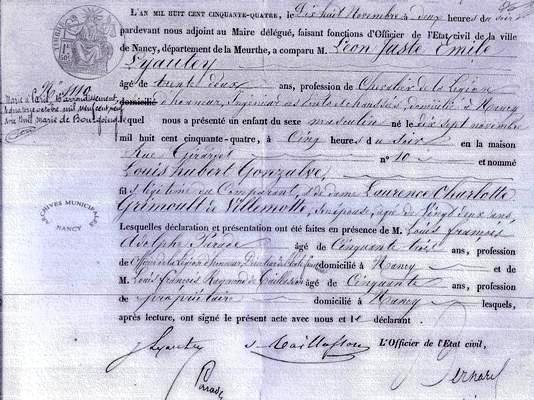 L'AN MIL HUIT CENT CINQUANTE-QUATRE, le Dix huit Novembre à deux heures du soir
pardevant nous adjoint au Maire délégué, faisant fonctions d'Officier de l'Etat civil de la ville
de Nancy, département de la Meurthe, a comparu M. Léon Juste Emile
Lyautey
âgé de trente deux ans, profession de Chevalier de la Légion
domicilié d'honneur, Ingénieur des ponts et chaussées, domicilié à Nancy
lequel nous a présenté un enfant du sexe masculin né le dix sept novembre
mil huit cent cinquante-quatre, à Cinq heures du soir en la maison
Rue Girardet n° 10 et nommé
Louis hubert Gonzalve,
fils légitime du Comparant, et de dame Laurence Charlotte
Grimoult de Villemotte, son épouse, âgée de Vingt deux ans,
Lesquelles déclaration et présentation ont été faites en présence de M. Louis francois
Adolphe âgé de Cinquante trois ans, profession
domicilié à Nancy et de
M. Louis François Raymond de Maillasson âgé de Cinquante ans, profession
de propriétaire domicilié à Nancy lesquels,
après lecture, ont signé le présent acte avec nous et le déclarant.
Lyautey
Maillasson
L'Officier de l'Etat civil,
N° 1110
Marié à Paris
mil neuf cent neuf
de Bourgoing
ARCHIVES MUNICIPALES
NANCY